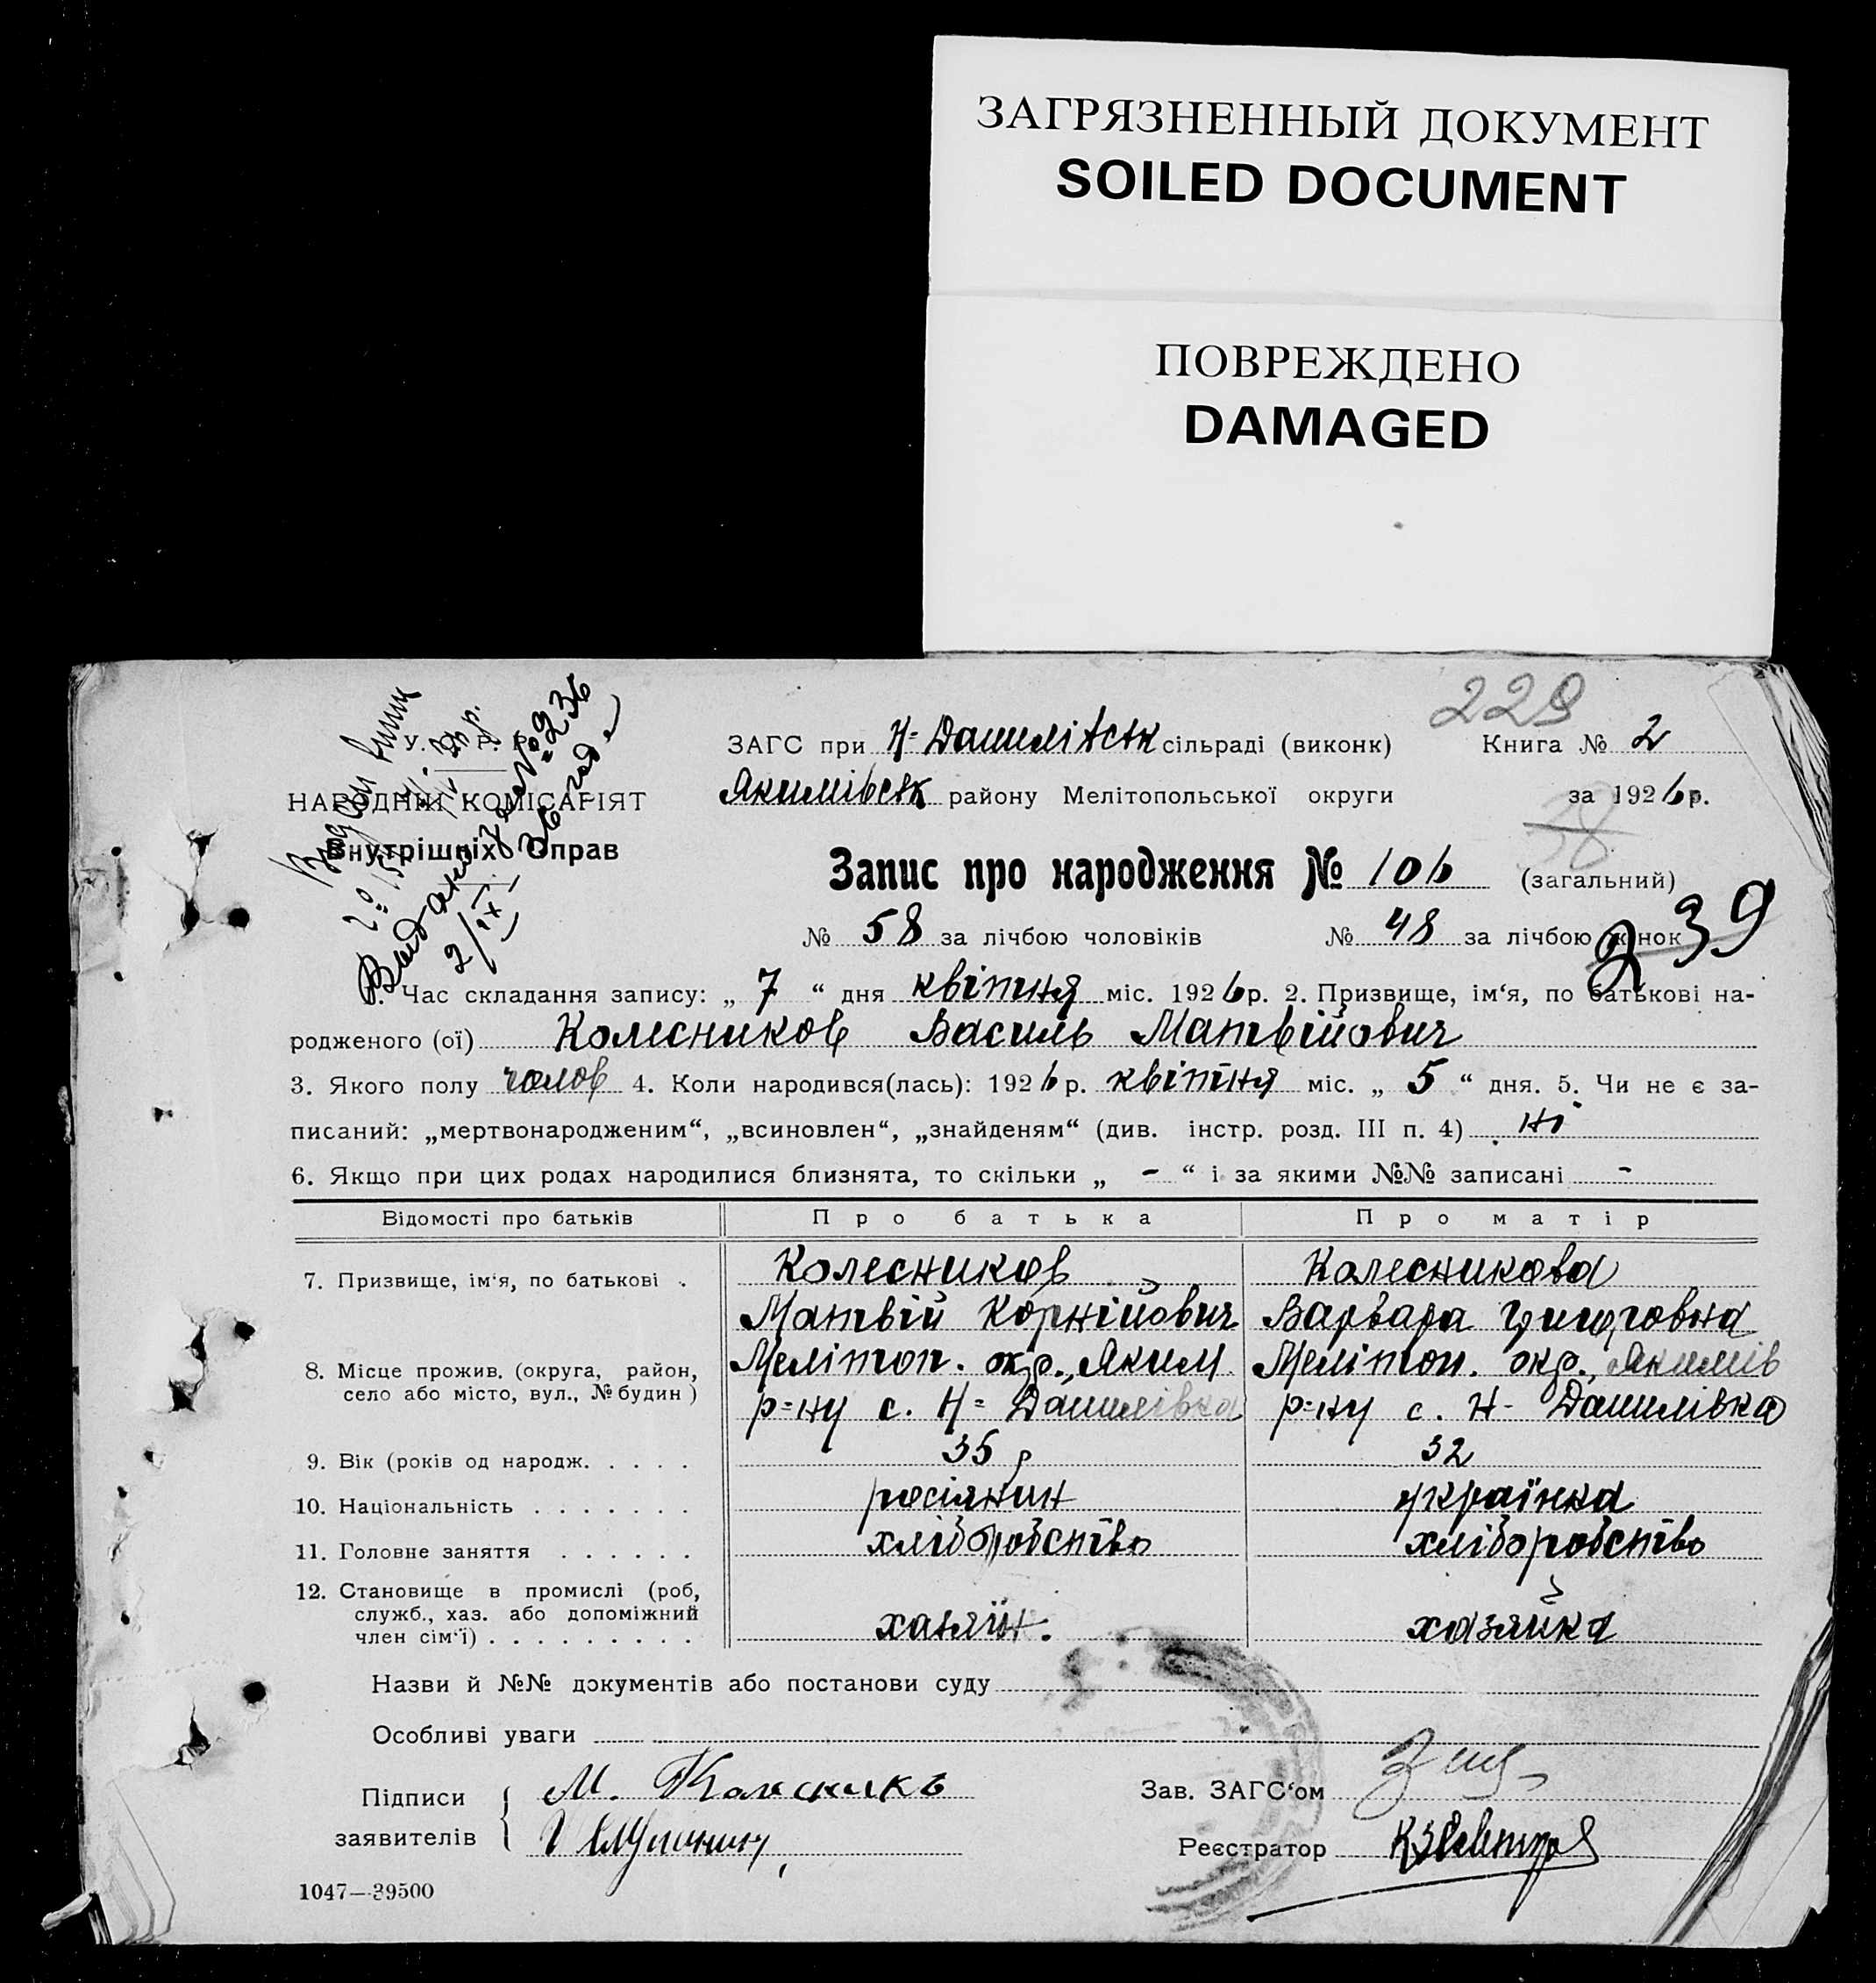 ЗАГРЯЗНЕННЫЙ ДОКУМЕНТ
SOILED DOCUMENT
ПОВРЕЖДЕНО
DAMAGED
229
У. Р.
НАРОДНІЙ КОМІСАРІЯТ
Внутрішніх Справ
№ 236
2/IX
ЗАГС при Н-Данилівськ сільраді (виконк) Книга № 2
Якимівськ району Мелітопольської округи за 1926 р.
38
Запис про народження № 106 (загальний)
239
№ 58 за лічбою чоловіків № 48 за лічбою жінок
1. Час складання запису: „ 7 “ дня квітня міс. 1926 р. 2. Призвище, ім‘я, по батькові на-
родженого (ої) Колесников Василь Матвійович
3. Якого полу чолов 4. Коли народився(лась): 1926 р. квітня міс. „ 5 “ дня. 5. Чи не є за-
писаний: „мертвонародженим“, „всиновлен“, „знайденям“ (див. інстр. розд. III п. 4) ні
6. Якщо при цих родах народилися близнята, то скільки „ - “ і за якими №№ записані -
Відомості про батьків Про батька Про матір
7. Призвище, ім‘я, по батькові . Колесников Колесникова
Матвій Корнійович Варвара Григоровна
8. Місце прожив. (округа, район, Мелітоп. окр., Яким. Мелітоп. окр., Якимів
село або місто, вул., № будин ) р-ну с. Н-Данилівка р-ну с. Н-Данилівка
9. Вік (років од народж. . . . . 35 р 32
10. Національність . . . . . . . росіянин українка
11. Головне заняття . . . . . . хліборобство хліборобство
12. Становище в промислі (роб,
служб., хаз. або допоміжний
член сім‘ї) . . . . . . . . . хазяїн. хазяйка
Назви й №№ документів або постанови суду
Особливі уваги
Підписи М. Колесникъ Зав. ЗАГС‘ом
заявителів Реєстратор
1047—39500